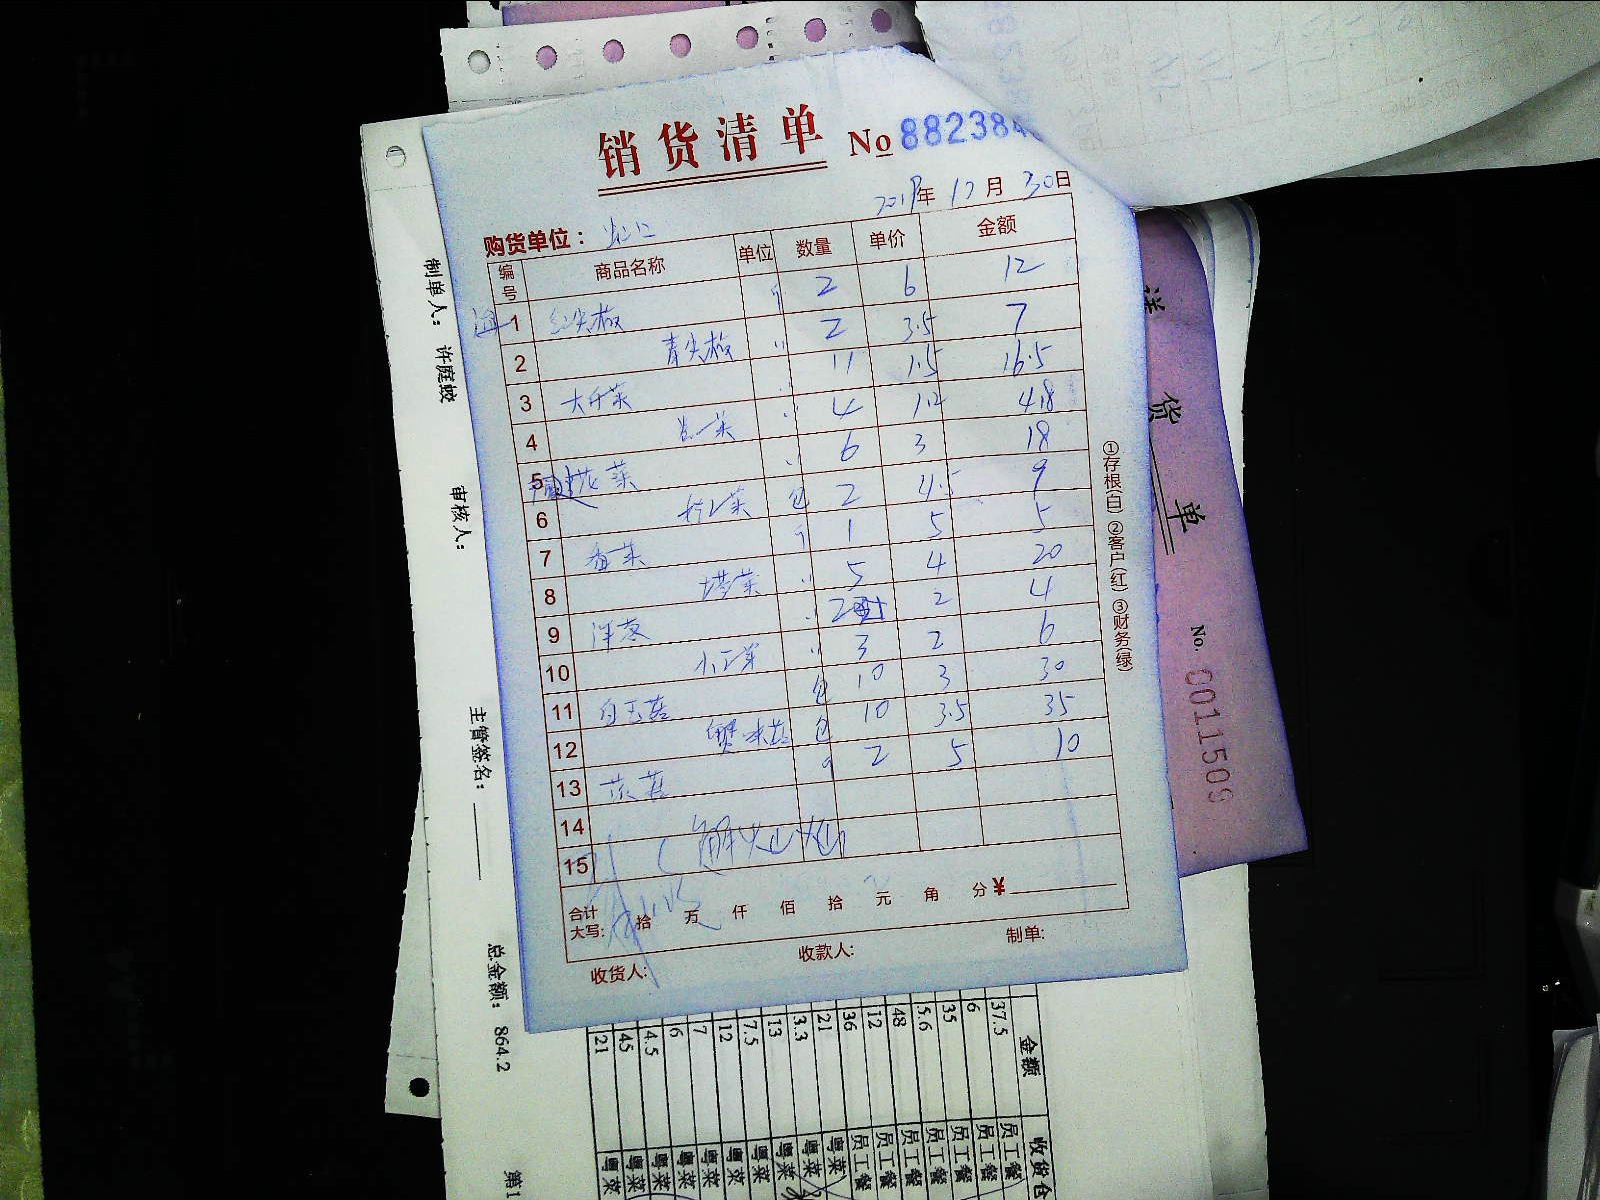 销货清单 No 882384
2019年 12月 30日
购货单位：
编号 商品名称 单位 数量 单价 金额
1 红尖椒 斤 2 6 12
2 青尖椒 〃 2 3.5 7
3 大白菜 〃 11 1.5 16.5
4 包菜 〃 4 1.2 4.8
5 花菜 〃 6 3 18
6 菜 包 2 4.5 9
7 香菜 斤 1 5 5
8 塔菜 〃 5 4 20
9 洋葱 〃 2 2 4
10 〃 3 2 6
11 白玉菇 包 10 3 30
12 蟹味菇 包 10 3.5 35
13 菇 斤 2 5 10
14
15
合计大写: 拾 万 仟 佰 拾 元 角 分 ¥
收货人: 收款人: 制单:
①存根(白) ②客户(红) ③财务(绿)
送货单
No. 0011509
制单人: 许庭蛟
审核人:
主管签名:
总金额: 864.2
第1
金额 收货仓
37.5 员工餐
6 员工餐
35 员工餐
5.6 员工餐
48 员工餐
12 员工餐
36 员工餐
21 粤菜
3.3 粤菜
13 粤菜
7.5 粤菜
12 粤菜
7 粤菜
6 粤菜
4.5 粤菜
45 粤菜
21 粤菜